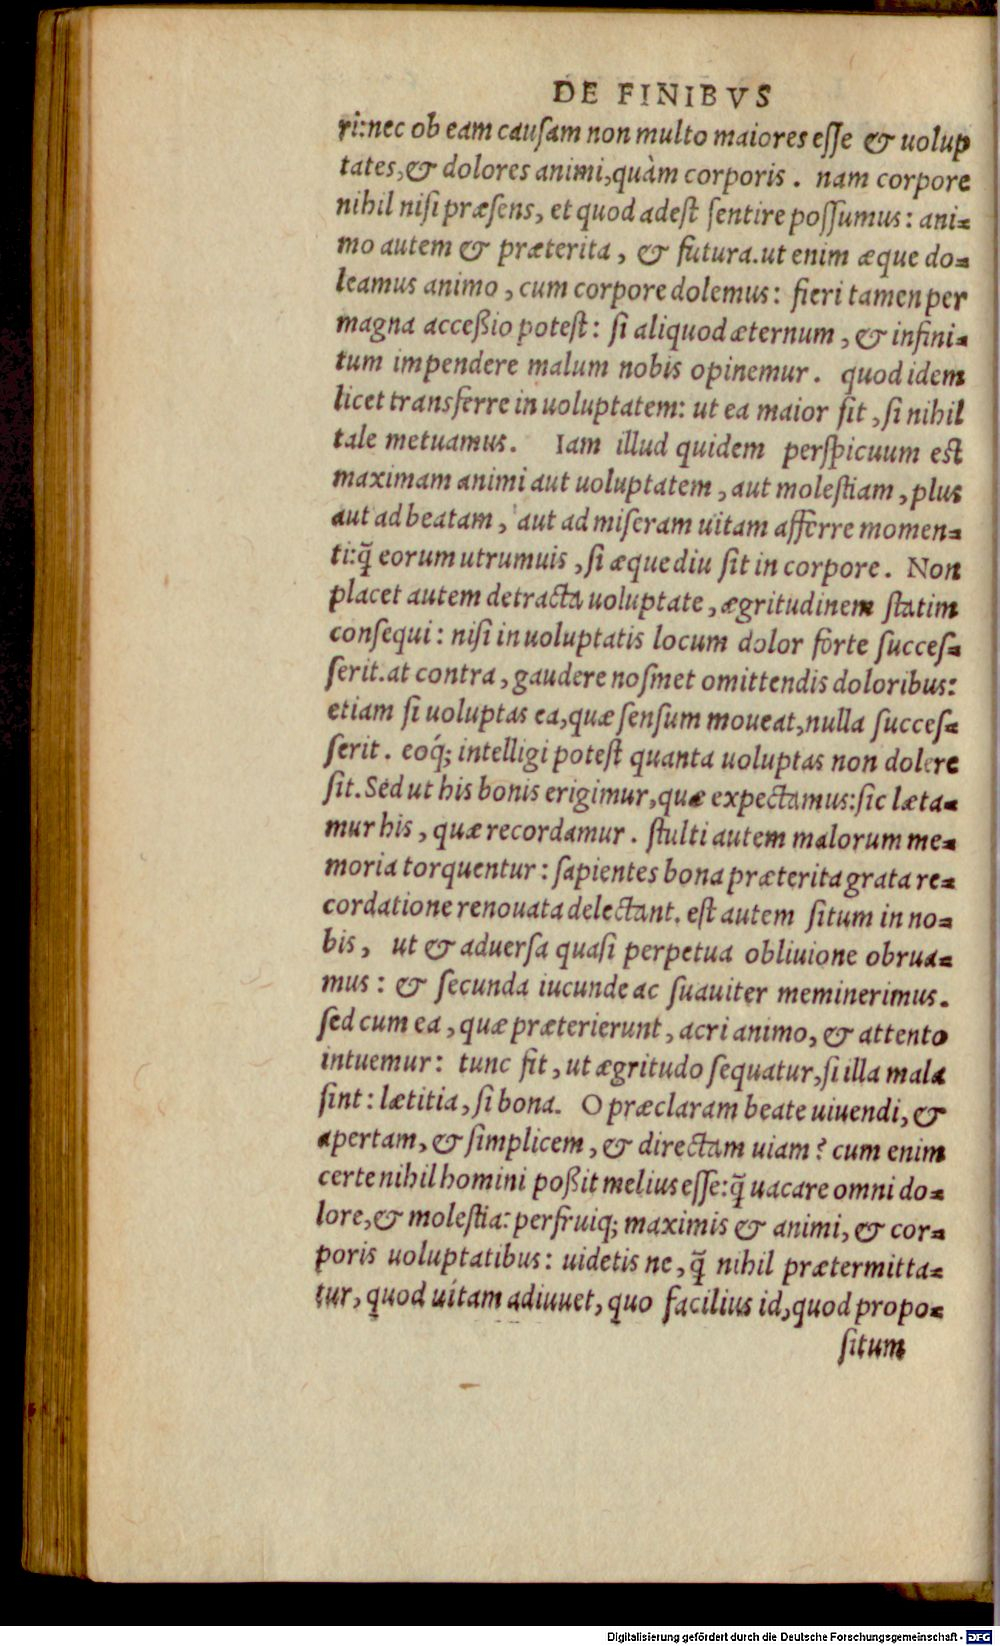 DE FINIBVS
ri:nec ob eam cauſam non multo maiores eſſe & uolup
tates,& dolores animi,quàm corporis. nam corpore
nihil niſi præſens, et quod adeſt ſentire poſſumus: ani-
mo autem & præterita, & futura.ut enim æque do-
leamus animo, cum corpore dolemus: fieri tamen per
magna acceßio poteſt: ſi aliquod æternum, & infini-
tum impendere malum nobis opinemur. quod idem
licet transferre in uoluptatem: ut ea maior ſit, ſi nihil
tale metuamus. Iam illud quidem perſpicuum est
maximam animi aut uoluptatem, aut moleſtiam, plus
aut ad beatam, aut ad miſeram uitam afferre momen-
ti:q̃ eorum utrumuis, ſi æque diu ſit in corpore. Non
placet autem detracta uoluptate, ægritudinem ſtatim
conſequi: niſi in uoluptatis locum dolor forte ſucceſ-
ſerit.at contra, gaudere noſmet omittendis doloribus:
etiam ſi uoluptas ea,quæ ſenſum moueat,nulla ſucceſ-
ſerit. eoq́; intelligi poteſt quanta uoluptas non dolere
ſit.Sed ut his bonis erigimur,quæ expectamus:ſic læta-
mur his, quæ recordamur. ſtulti autem malorum me-
moria torquentur: ſapientes bona præterita grata re-
cordatione renouata delectant. eſt autem ſitum in no-
bis, ut & aduerſa quaſi perpetua obliuione obrua-
mus: & ſecunda iucunde ac ſuauiter meminerimus.
ſed cum ea, quæ præterierunt, acri animo, & attento
intuemur: tunc fit, ut ægritudo ſequatur,ſi illa mala
ſint: lætitia, ſi bona. O præclaram beate uiuendi, &
apertam, & ſimplicem, & directam uiam? cum enim
certe nihil homini poßit melius eſſe:q̃ uacare omni do-
lore,& moleſtia: perfruiq; maximis & animi, & cor-
poris uoluptatibus: uidetis ne, q̃ nihil prætermitta-
tur, quod uitam adiuuet, quo facilius id,quod propo-
ſitum
Digitalisierung gefördert durch die Deutsche Forschungsgemeinschaft - DFG